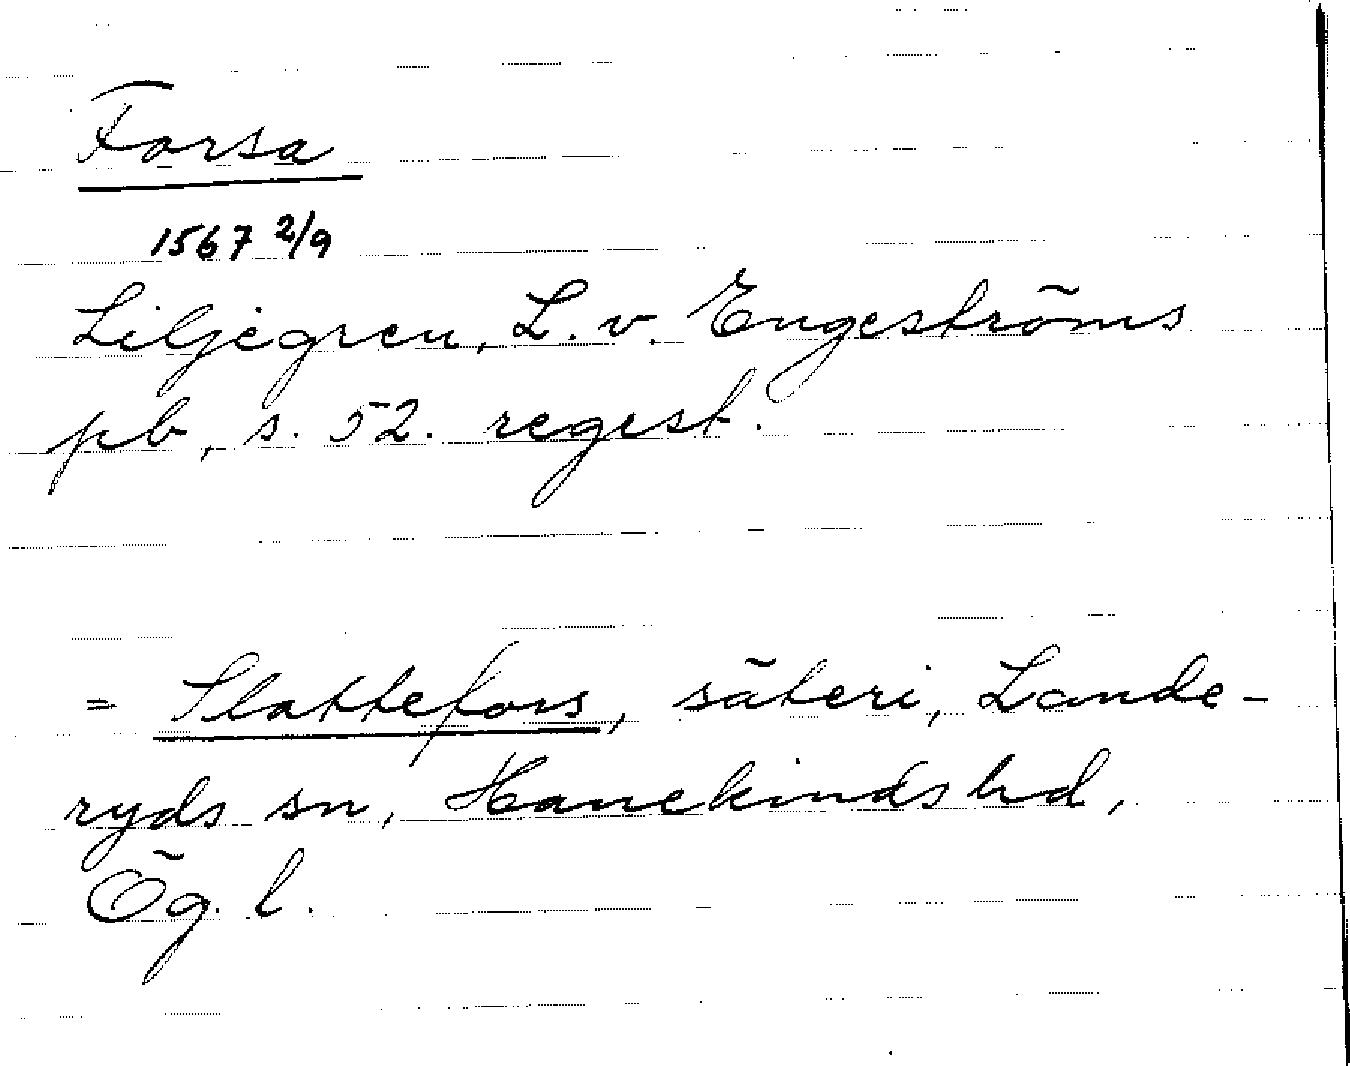 Forsa
1567 2/9
Liljegren, L. v. Engeströms
pb, s. 52. regest.
= Slattefors, säteri, Lande-
ryds sn, Hanekinds hd,
Ög. l.